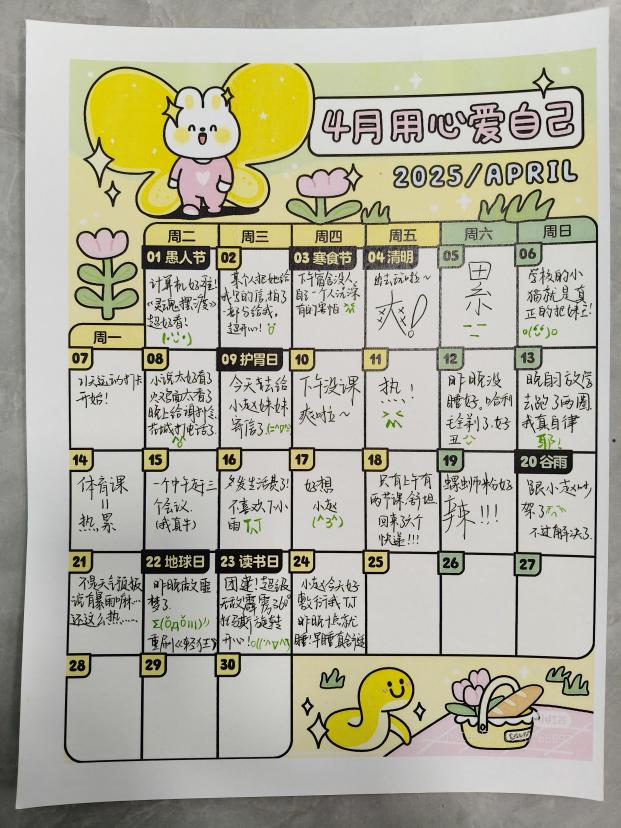 4月用心爱自己
2025/APRIL
周二 周三 周四 周五 周六 周日
周一
01 愚人节
计算机好难!
《灵魂摆渡》
超好看!
02
某个人把她给
我写的信,拍了
一部分给我。
超开心!
03 寒食节
下午宿舍没人,
自己一个人洗澡
有的害怕
04 清明
出去玩啦~
爽!
05
累
06
学校的小
猫就是真
正的把妹王!
07
21天运动打卡
开始!
08
小说太好看了
火又面太看了
晚上给谢
打电话了
09 护胃日
今天去给
小赵妹妹
寄信了
10
下午没课
爽啦~
11
热!
12
昨晚没
睡好。哈利
毛剃了.好
丑
13
晚自习放学
去跑了两圈
我真自律
耶!
14
体育课
=
热累
15
一个中午开三
个会议.
(我真牛)
16
多发生活费了!
不喜欢下小
雨 TT
17
好想
小赵
(^3^)
18
只有上午有
两节课.舒坦.
回来了六个
快递!!!
19
螺蛳粉好
辣!!!
20 谷雨
跟小赵吵
架了
不过解决了.
21
不是天气预报
说有暴雨嘛…
还这么热……
22 地球日
昨晚做噩
梦了.
重刷《轻狂》
23 读书日
团建!超级
无敌霹雳360°
狂飙旋转
开心!
24
小赵今天好
敷衍我 TT
昨晚十点就
睡!早睡真舒适
25
26
27
28
29
30